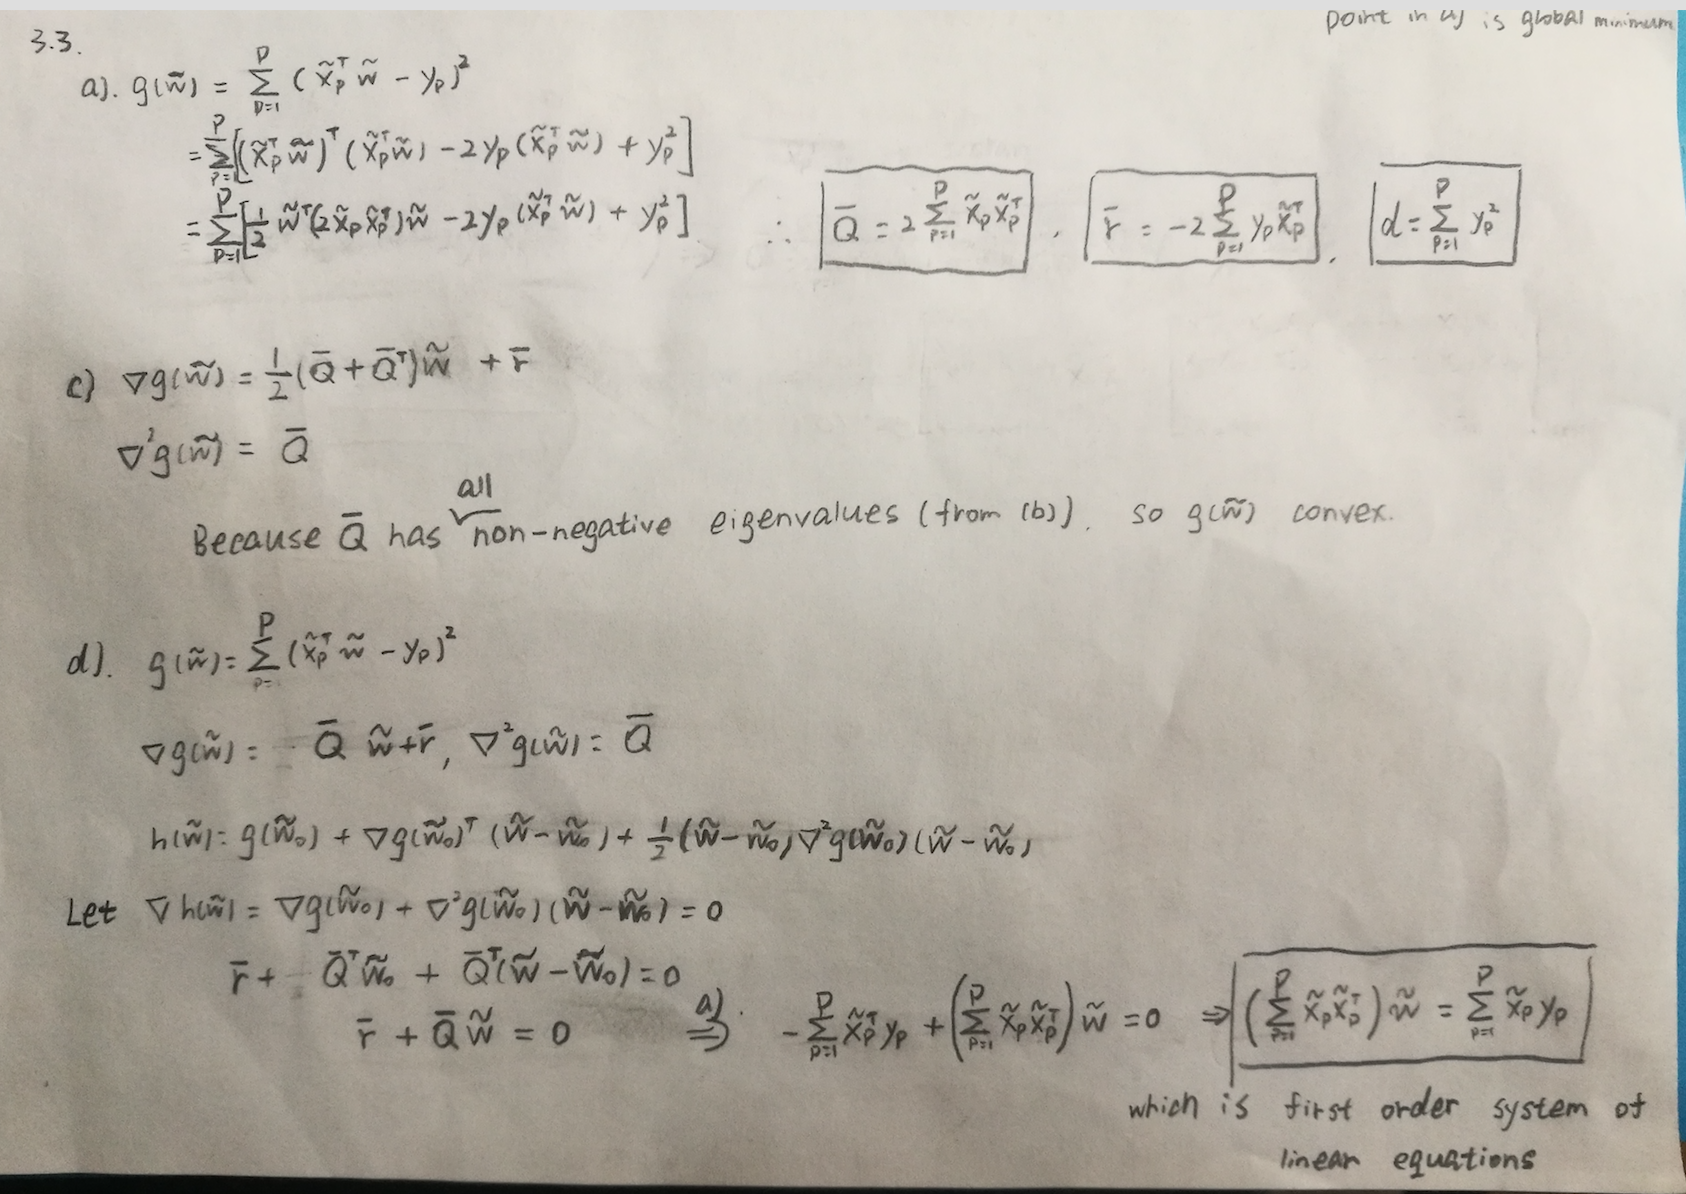 point in a) is global minimum
3.3.
a). g(w̃) = Σ_{p=1}^{P} (x̃_p^T w̃ - y_p)^2
= Σ_{p=1}^{P} [(x̃_p^T w̃)^T (x̃_p^T w̃) - 2y_p (x̃_p^T w̃) + y_p^2]
= Σ_{p=1}^{P} [1/2 w̃^T (2x̃_p x̃_p^T) w̃ - 2y_p (x̃_p^T w̃) + y_p^2] ∴ Q̄ = 2 Σ_{p=1}^{P} x̃_p x̃_p^T , r̄ = -2 Σ_{p=1}^{P} y_p x̃_p^T , d = Σ_{p=1}^{P} y_p^2
c) ∇g(w̃) = 1/2 (Q̄ + Q̄^T) w̃ + r̄
∇^2 g(w̃) = Q̄
Because Q̄ has all non-negative eigenvalues (from (b)), so g(w̃) convex.
d). g(w̃) = Σ_{p=}^{P} (x̃_p^T w̃ - y_p)^2
∇g(w̃) = Q̄ w̃ + r̄, ∇^2 g(w̃) = Q̄
h(w̃) = g(w̃_0) + ∇g(w̃_0)^T (w̃ - w̃_0) + 1/2 (w̃ - w̃_0) ∇^2 g(w̃_0) (w̃ - w̃_0)
Let ∇h(w̃) = ∇g(w̃_0) + ∇^2 g(w̃_0) (w̃ - w̃_0) = 0
r̄ + Q̄^T w̃_0 + Q̄^T (w̃ - w̃_0) = 0
r̄ + Q̄ w̃ = 0 a) ⇒ - Σ_{p=1}^{P} x̃_p^T y_p + (Σ_{p=1}^{P} x̃_p x̃_p^T) w̃ = 0 ⇒ (Σ_{p=1}^{P} x̃_p x̃_p^T) w̃ = Σ_{p=1}^{P} x̃_p y_p
which is first order system of
linear equations